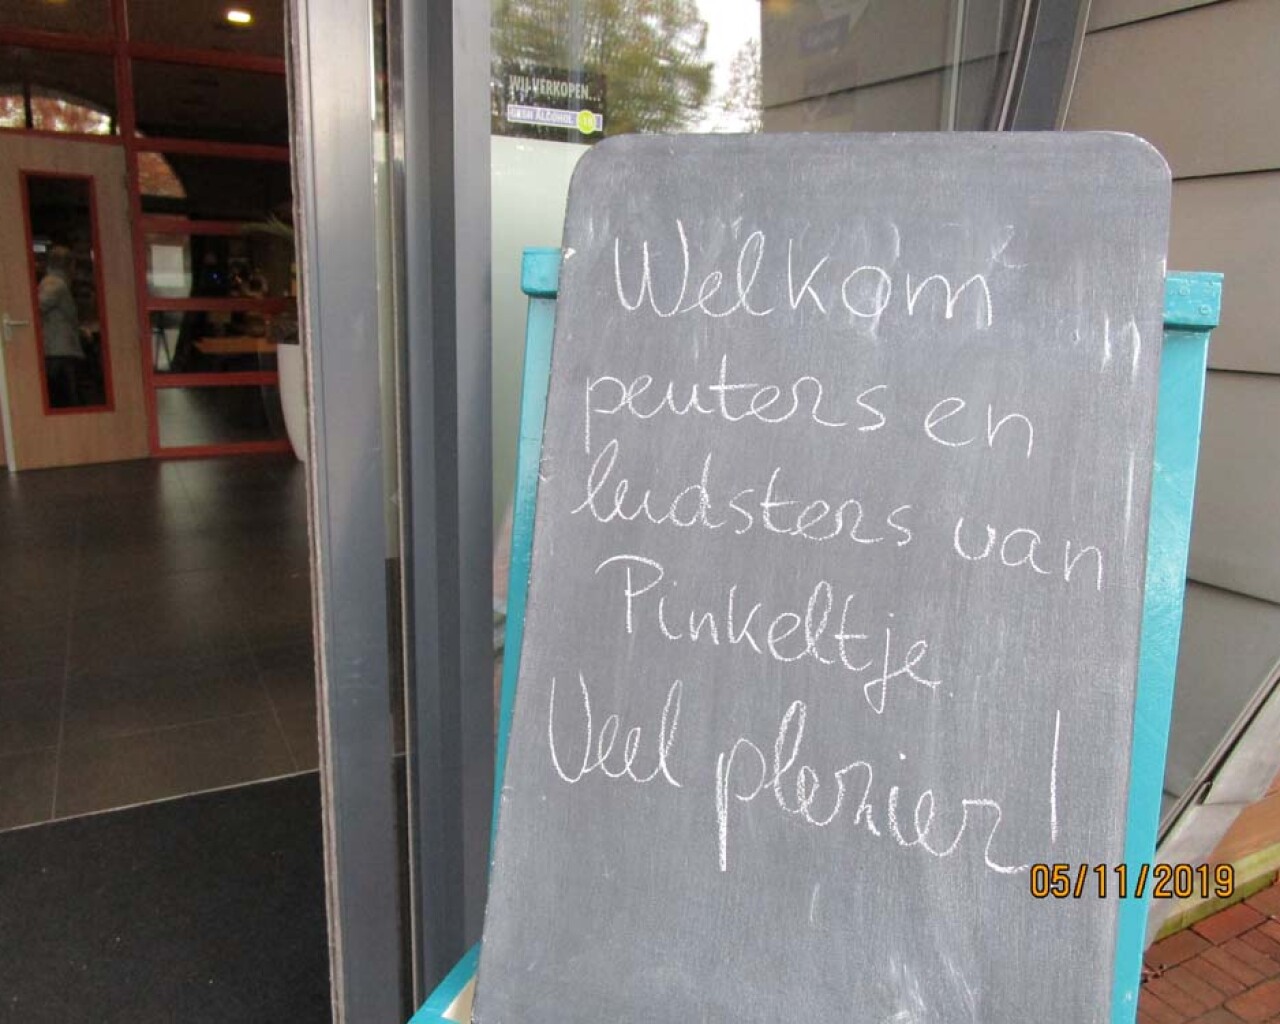 WIJ VERKOPEN...
GEEN ALCOHOL -18
Welkom
peuters en
leidsters van
Pinkeltje.
Veel plezier!
05/11/2019